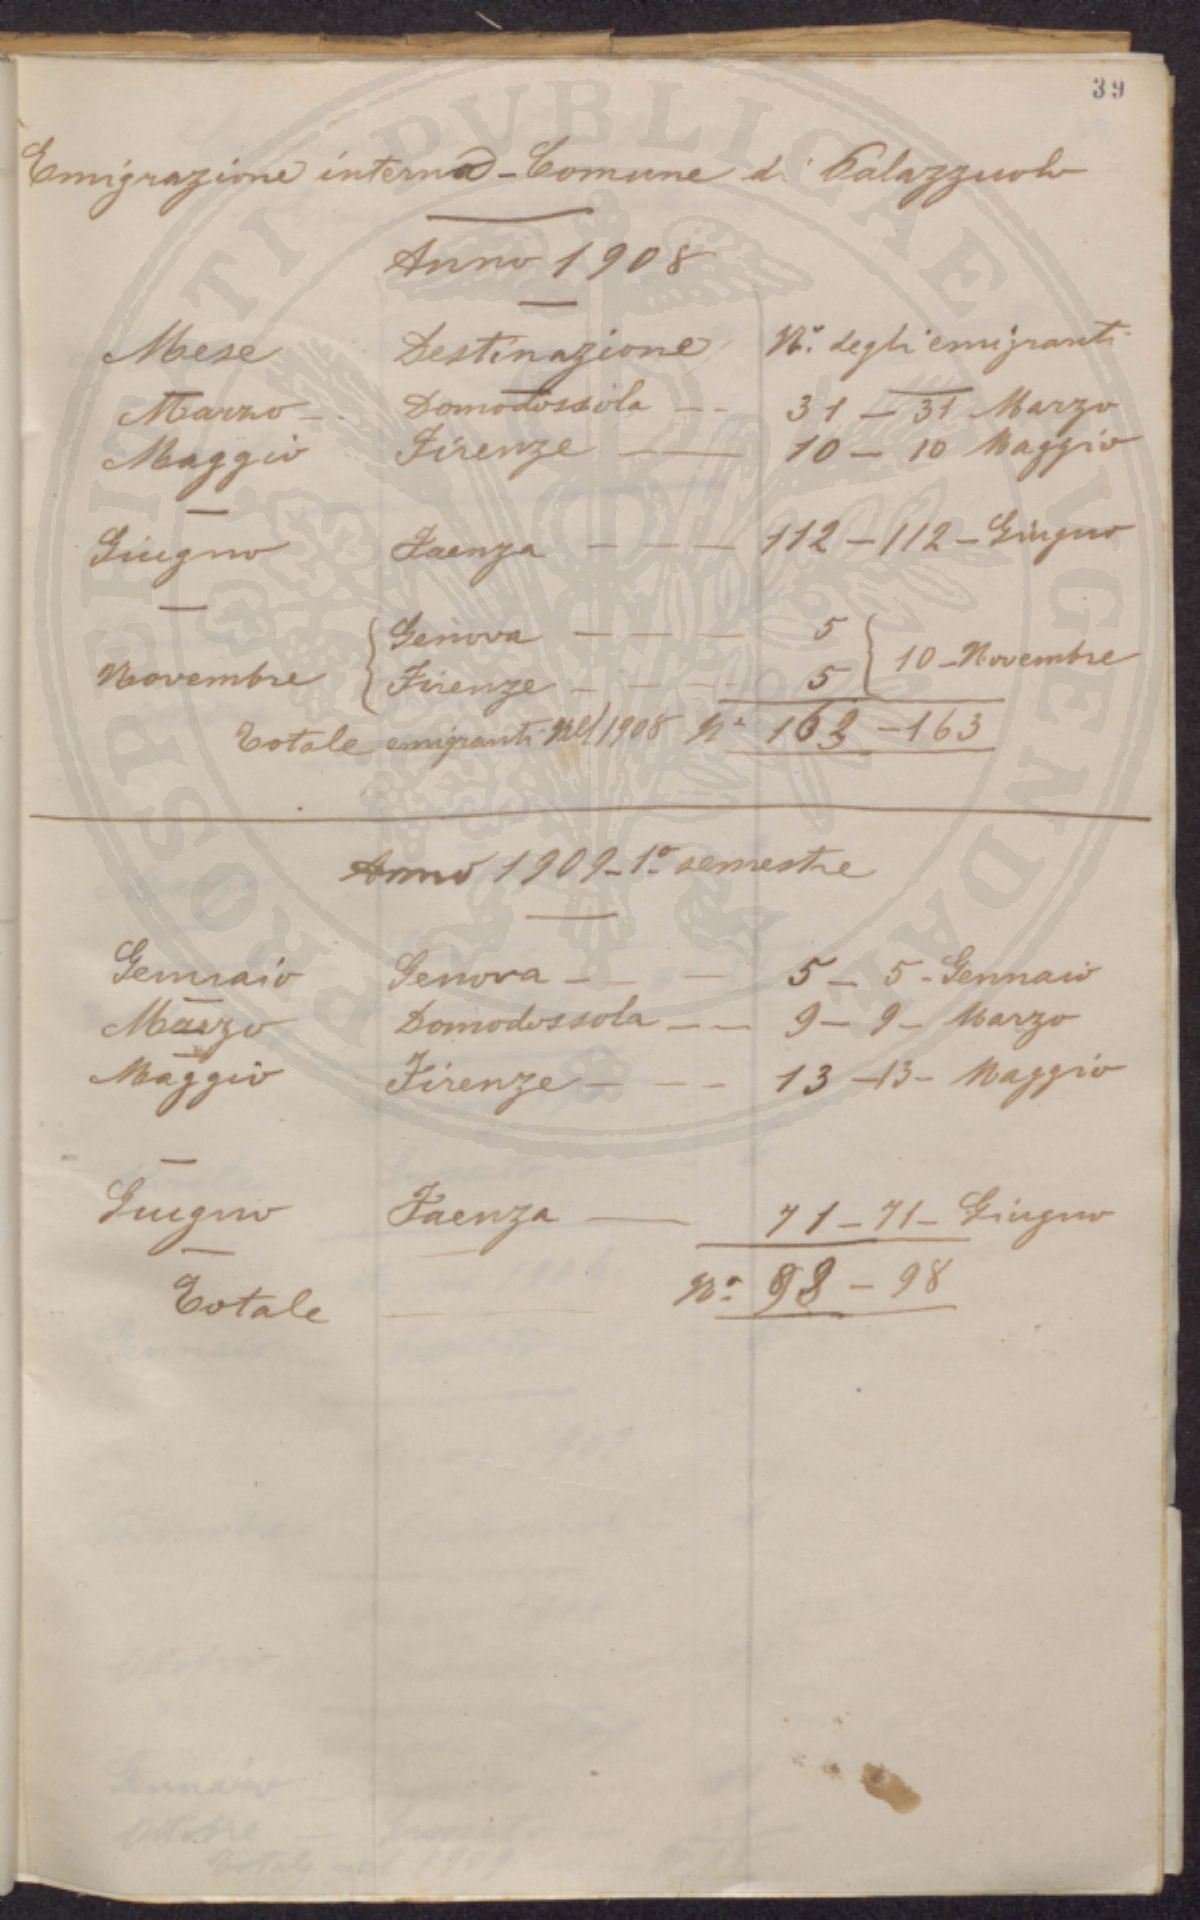 39
PROSPERITATI PVBLICAE AVGENDAE
Emigrazione interna - Comune di Palazzuolo
Anno 1908
Mese Destinazione N.° degli emigranti
Marzo - - Domodossola - - 31 - 31 Marzo
Maggio Firenze - - 10 - 10 Maggio
Giugno Faenza - - - 112 - 112 - Giugno
Genova - - - 5
Novembre { } 10 - Novembre
Firenze - - - 5
Totale emigranti nel 1908 N.° 163 - 163
Anno 1909 - 1.° semestre
Gennaio Genova - - - 5 - 5 - Gennaio
Marzo Domodossola - - 9 - 9 - Marzo
Maggio Firenze - - - 13 - 13 - Maggio
Giugno Faenza - 71 - 71 - Giugno
Totale - - N.° 98 - 98